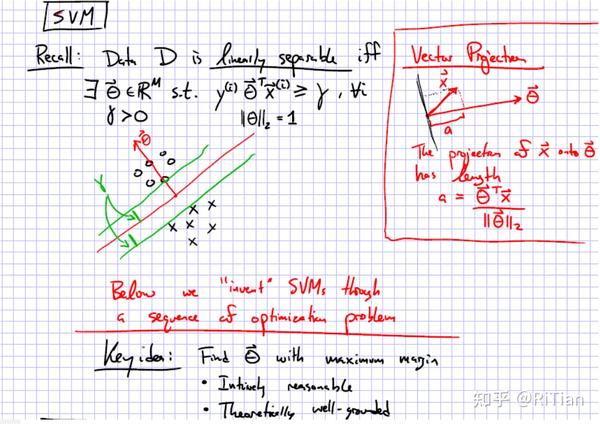 SVM
Recall: Data D is linearly separable iff
∃ θ⃗ ∈ ℝᴹ s.t. y⁽ⁱ⁾ θ⃗ᵀx⃗⁽ⁱ⁾ ≥ γ, ∀i
γ > 0 ||θ||₂ = 1
θ⃗
γ
Vector Projection
x⃗
θ⃗
a
The projection of x⃗ onto θ⃗
has length
a = θ⃗ᵀx⃗ / ||θ⃗||₂
Below we "invent" SVMs through
a sequence of optimization problem
Key idea: Find θ⃗ with maximum margin
• Intively reasonable
• Theoretically well-grounded
知乎 @RiTian